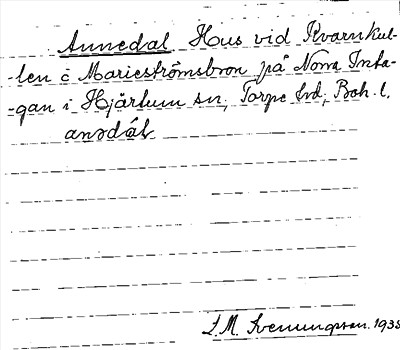 Annedal Hus vid Kvarnkul-
-len o Marieströmsbron på Norra Inta-
-gan i Hjärtum sn, Torpe hd, Boh. l.
anədáɫ
S. M. Svenungsson. 1935